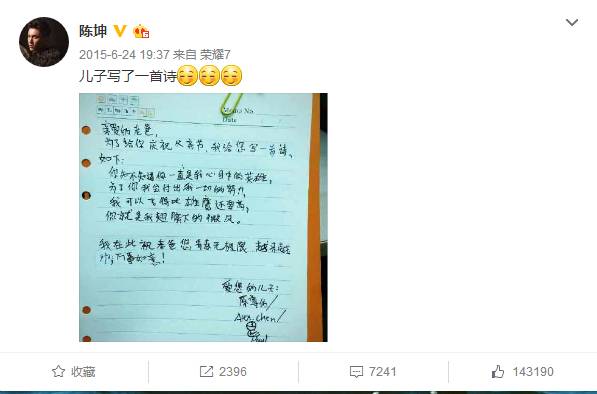 陈坤
2015-6-24 19:37 来自 荣耀7
儿子写了一首诗
Memo No.
Date
亲爱的老爸,
为了给你庆祝父亲节,我给您写一首诗,
如下:
你知不知道你一直是我心目中的英雄,
为了你我会付出我一切的努力,
我可以飞得比雄鹰还要高,
你就是我翅膀下的微风。
我在此祝老爸您青春无极限,越来越
帅,万事如意!
爱您的儿子:
陈尊佑/
Alex chen/
收藏
2396
7241
143190